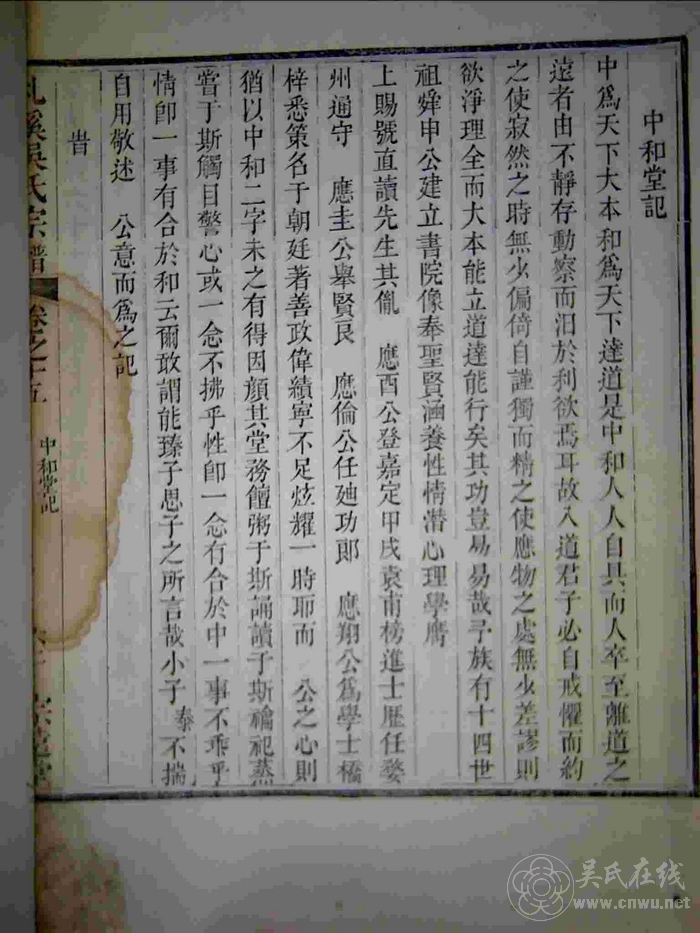 中和堂記
中爲天下大本和爲天下達道是中和人人自具而人卒至離道之
遠者由不靜存動察而汨於利欲焉耳故入道君子必自戒懼而約
之使寂然之時無少偏倚自謹獨而精之使應物之處無少差謬則
欲淨理全而大本能立道達能行矣其功豈易易哉予族有十四世
祖舜申公建立書院像奉聖賢涵養性情潛心理學膺
上賜號直讀先生其胤 應酉公登嘉定甲戌袁甫榜進士歷任婺
州通守 應圭公舉賢良 應倫公任廸功郎 應翔公爲學士橋
梓悉策名于朝廷著善政偉績寧不足炫耀一時耶而 公之心則
猶以中和二字未之有得因顏其堂務饘粥于斯誦讀于斯禴祀蒸
嘗于斯觸目警心或一念不拂乎性卽一念有合於中一事不乖乎
情卽一事有合於和云爾敢謂能臻子思子之所言哉小子 泰 不揣
自用敬述 公意而爲之記
旹
溪吳氏宗譜 卷之十五 中和堂記
吴氏在线
www.cnwu.net